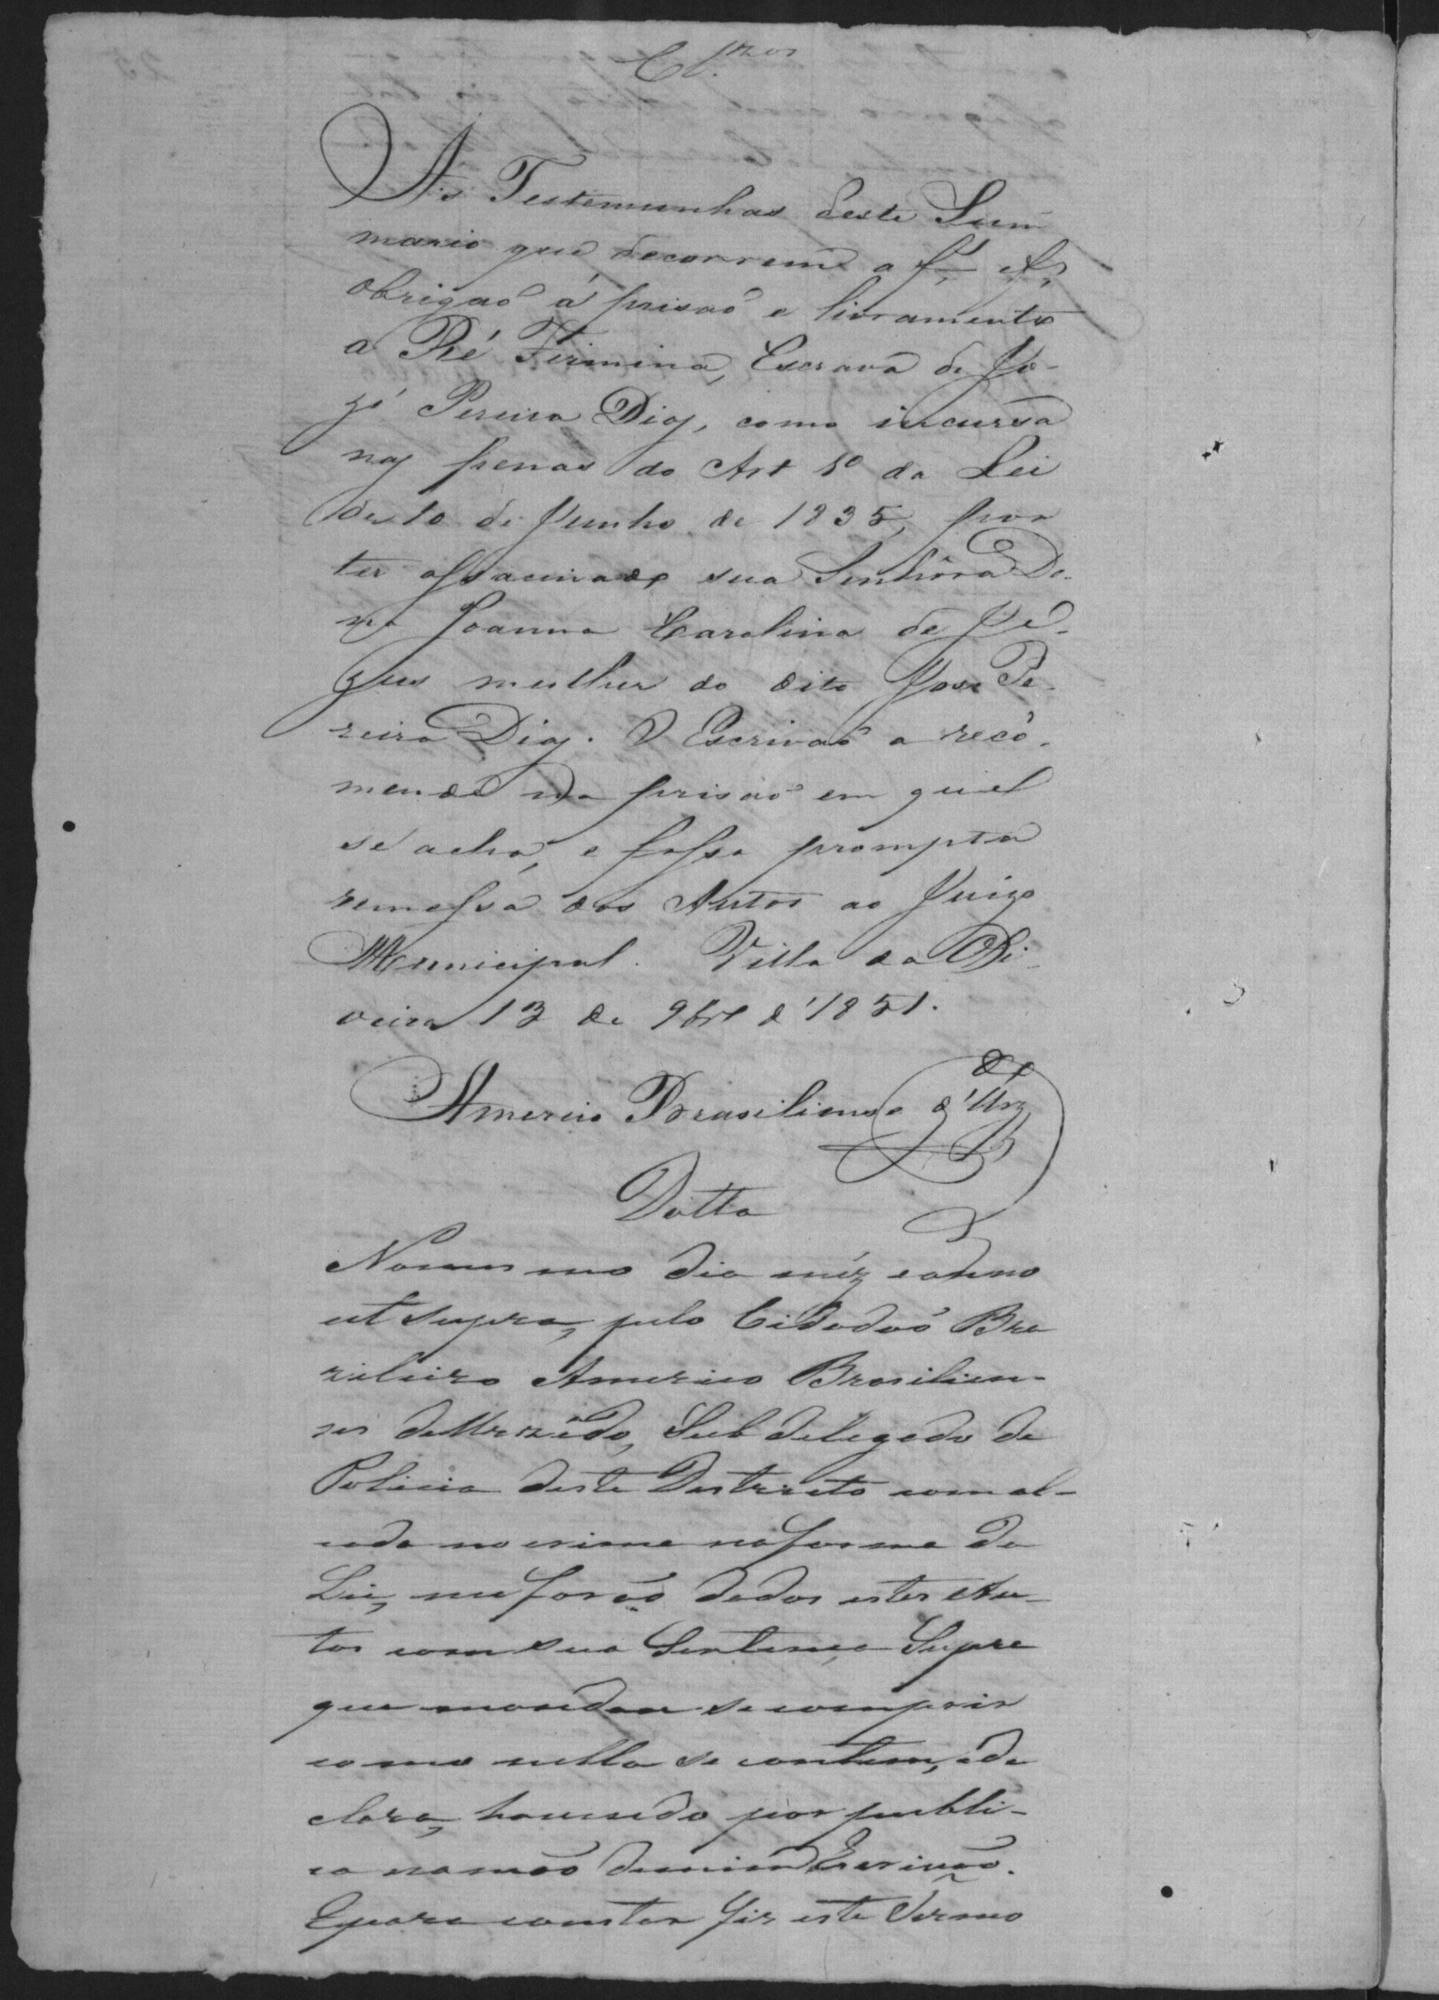 Clzos
As Testemunhas deste Sum
mario que decorrem a f
obrigaõ á prisaõ e livramento
a Ré Firmina, Escrava de Jo-
zé Pereira Diaz, como incursa
naz penas do Art 1º da Lei
de 10 de Junho de 1835, por
ter assacinado sua Senhôra Do-
na Joanna Carolina de Jé-
zus mulher do dito Jose Pe-
reira Diaz. O Escrivaõ a reco-
mende na prisaõ em que
se acha, e fassa prompta
remessa dos Autos ao Juizo
Municipal. Villa da Oli-
veira 13 de 9bre d'1851.
Americo Brasiliense
Datta
No mesmo dia mêz e anno
ut supra, pelo Cidadaõ Bra
zileiro Americo Brasilien-
ses Subdelegado de
Policia deste Destrecto com al-
cada no crime na forma da
Lei, me foraõ dados estes Au-
tos com sua Sentença Supra
que mandou se comprir
como nella se contem, e de
clara, havendo por publi-
ca na maõ de mim Escrivaõ.
E para constar fiz este Termo